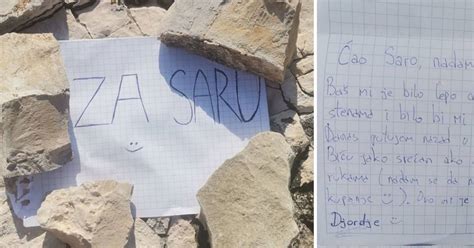 ZA SARU
Ćao Saro, nadam
Baš mi je bilo lepo
stenama i bilo bi mi
Danas putujem nazad
jako srećan ako
rukama (nadam se da
kupanje ☺). Ovo je
Djordje ☺